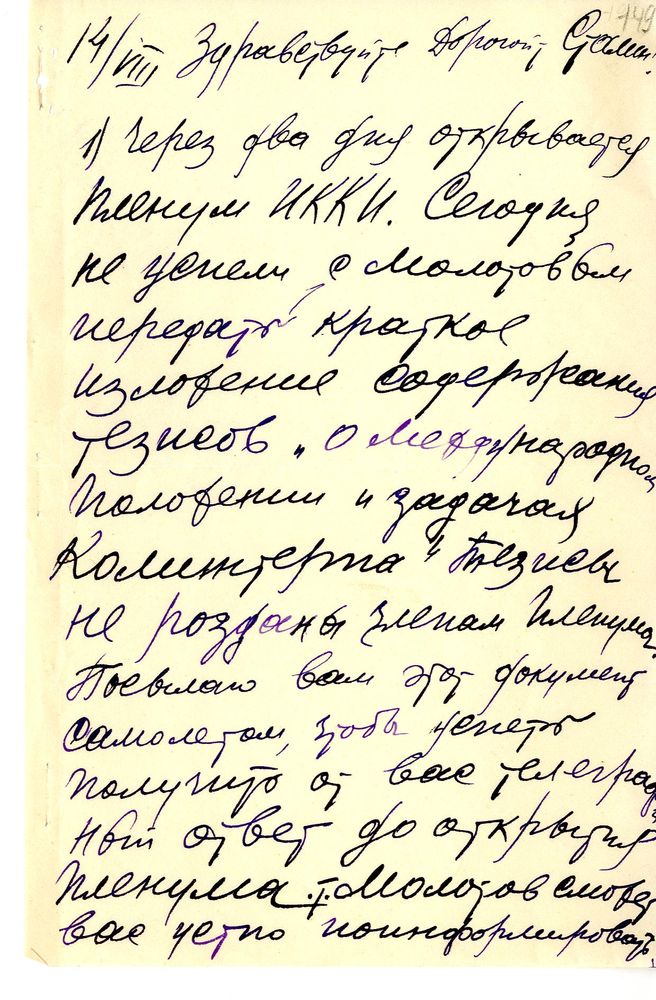 149
14/VIII Здравствуйте Дорогой Сталин!
1) Через два дня открывается
Пленум ИККИ. Сегодня
не успели с Молотовым
передать краткое
изложение содержания
тезисов „О международном
положении и задачах
Коминтерна" Тезисы
не розданы членам Пленума.
Посылаю вам этот документ
самолетом, чтобы успеть
получить от вас телеграф
ный ответ до открытия
Пленума. т. Молотов сможет
вас устно поинформировать.